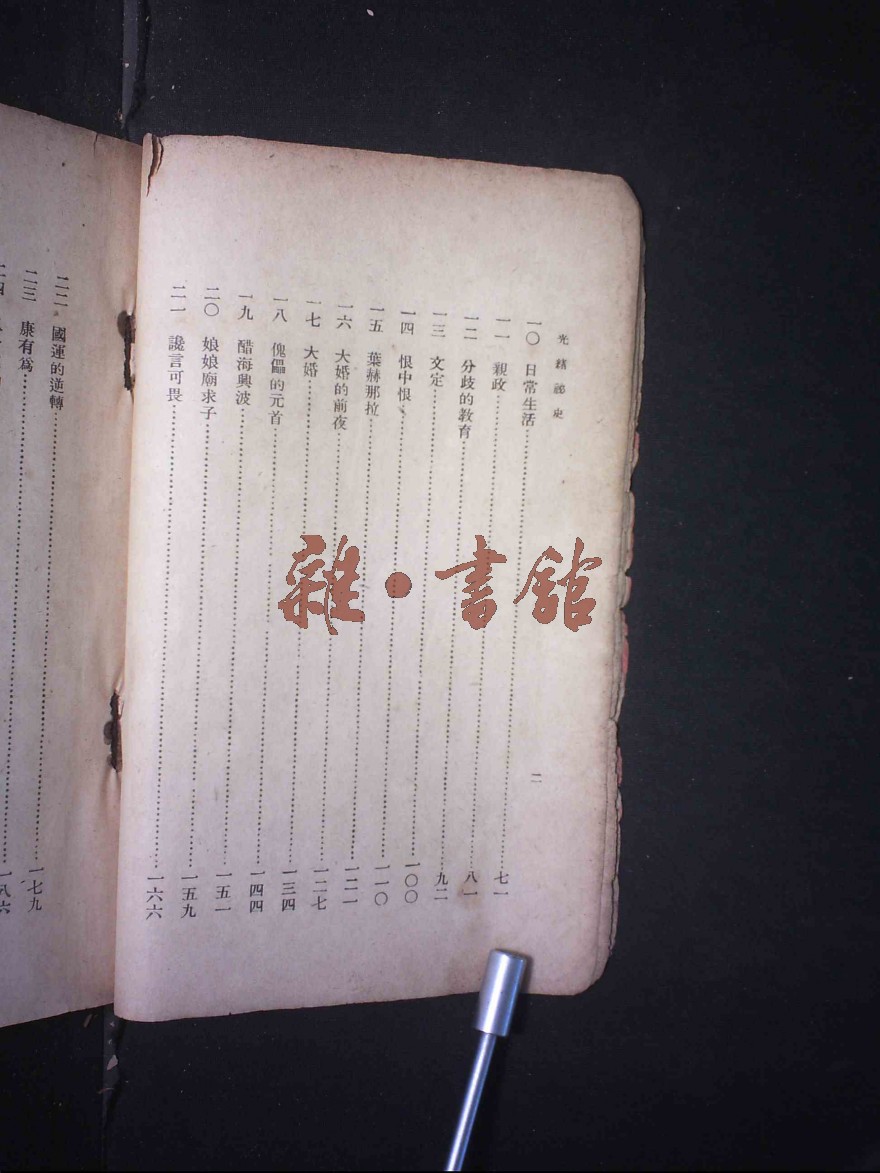 光緒祕史
二
一〇 日常生活……七一
一一 親政……八一
一二 分歧的教育……九二
一三 文定……一〇〇
一四 恨中恨……一一〇
一五 葉赫那拉……一二一
一六 大婚的前夜……一二七
一七 大婚……一三四
一八 傀儡的元首……一四四
一九 醋海興波……一五一
二〇 娘娘廟求子……一五九
二一 讒言可畏……一六六
二二 國運的逆轉……一七九
二三 康有爲……一八六
二四
雜·書館